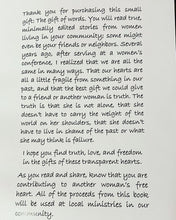 Thank you for purchasing this small
gift: The gift of words. You will read true,
minimally edited stories from women
living in your community; some might
even be your friends or neighbors. Several
years ago, after serving at a women's
conference, I realized that we are all the
same in many ways. That our hearts are
all a little fragile from something in our
past, and that the best gift we could give
to a friend or another woman is truth. The
truth is that she is not alone, that she
doesn't have to carry the weight of the
world on her shoulders, that she doesn't
have to live in shame of the past or what
she may think is failure.
I hope you find truth, love, and freedom
in the gifts of these transparent hearts.
As you read and share, know that you are
contributing to another woman's free
heart. All of the proceeds from this book
will be used at local ministries in our
community.